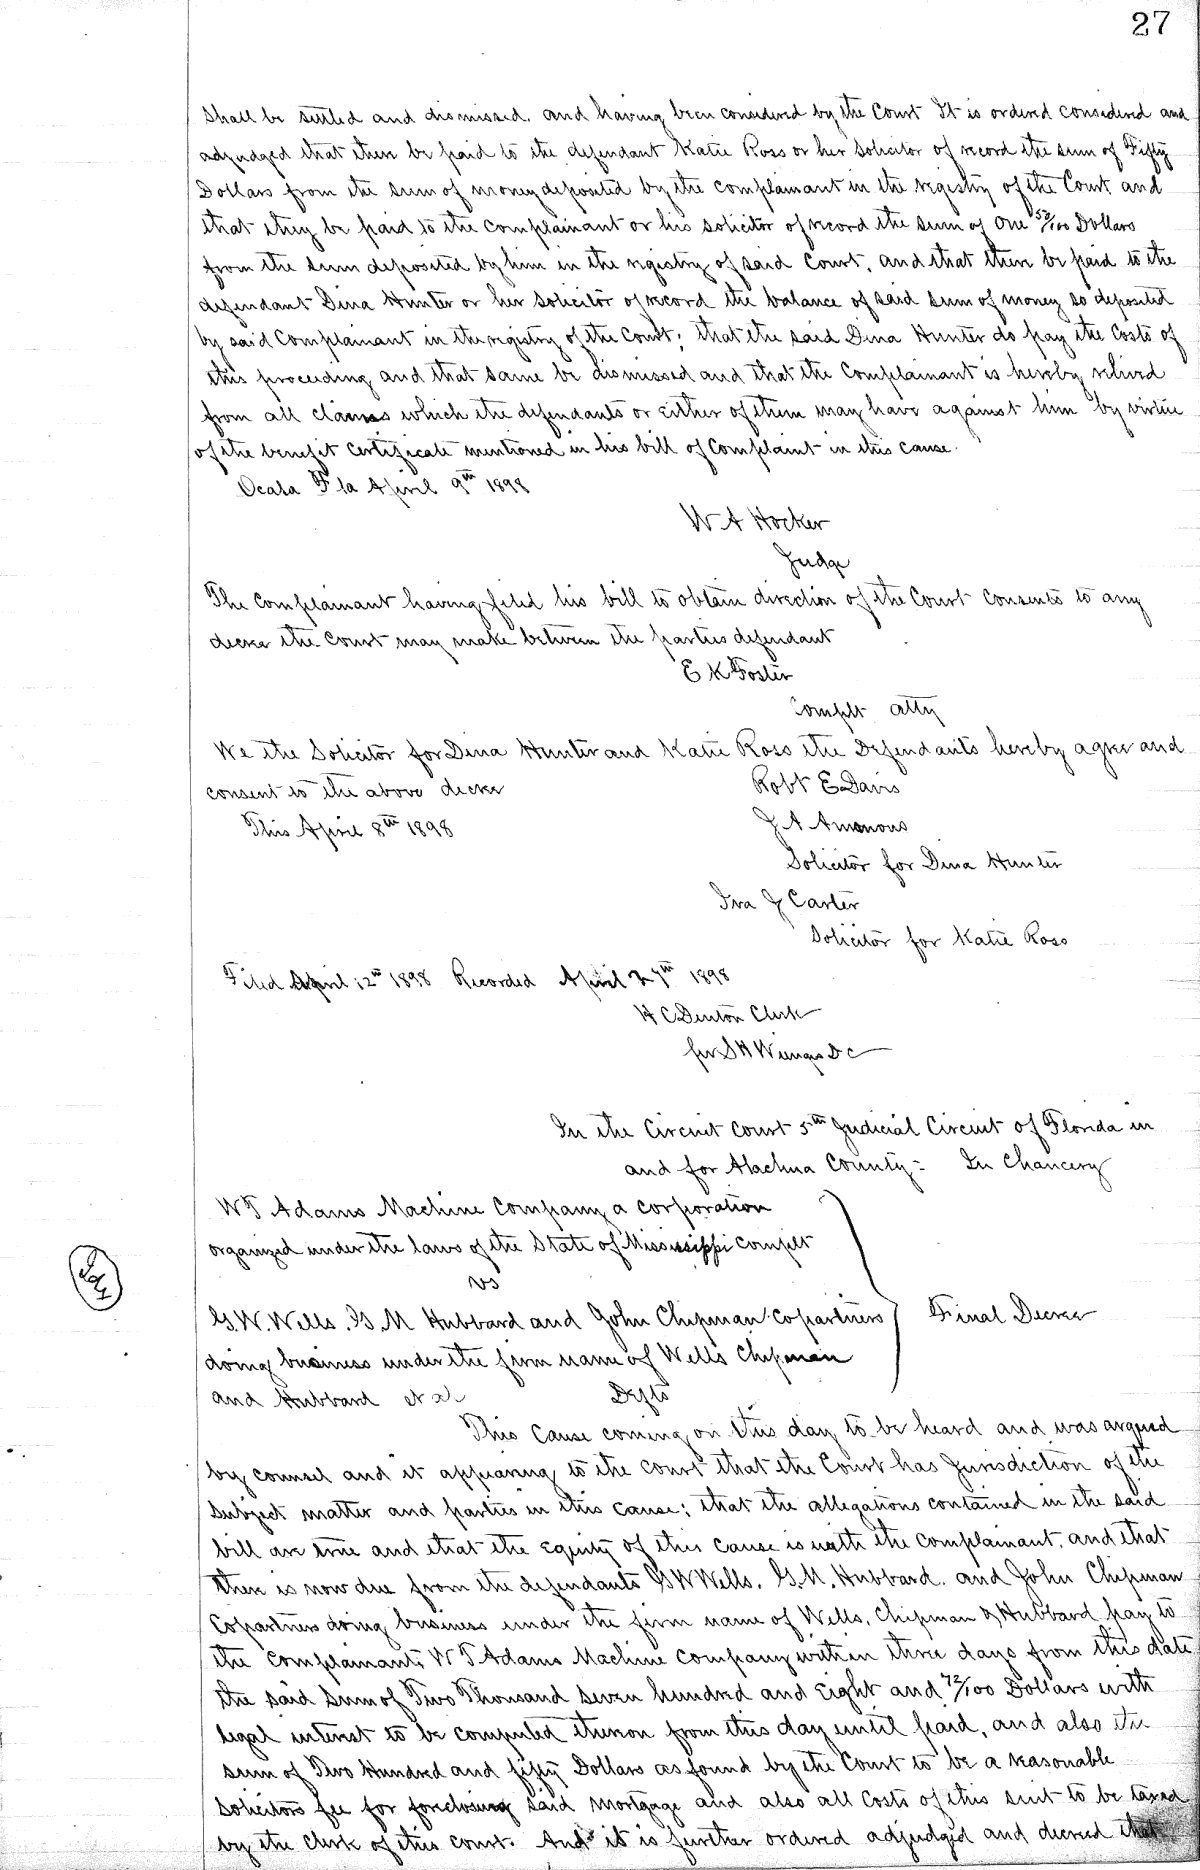 27
shall be settled and dismissed. and having been considered by the Court It is ordered considered and
adjudged that there be paid to the defendant Katie Ross or her solicitor of record the sum of Fifty
Dollars from the sum of money deposited by the complainant in the registry of the Court and
that they be paid to the complainant or his solicitor of record the sum of One 52/100 Dollars
from the sum deposited by him in the registry of said Court, and that there be paid to the
defendant Dina Hunter or her solicitor of record the balance of said sum of money so deposited
by said Complainant in the registry of the Court; that the said Dina Hunter do pay the costs of
this proceeding and that same be dismissed and that the Complainant is hereby relived
from all claims which the defendants or either of them may have against him by virtue
of the benefit certificate mentioned in his bill of Complaint in this cause.
Ocala Fla April 9th 1898
W A Hocker
Judge
The complainant having filed his bill to obtain direction of the Court consents to any
decree the Court may make between the parties defendant
E K Foster
Complt atty
We the Solicitor for Dina Hunter and Katie Ross the Defendants hereby agree and
consent to the above decree
Robt E Davis
This April 8th 1898
J A Ammons
Solicitor for Dina Hunter
Ira J Carter
Solicitor for Katie Ross
Filed April 12th 1898 Recorded April 27th 1898
H C Denton Clerk
per S H Wienges D C
In the Circuit Court 5th Judicial Circuit of Florida in
and for Alachua County: In Chancery
W T Adams Machine Company a corporation
organized under the laws of the State of Mississippi complt
vs
G. W. Wells. G. M Hubbard and John Chipman copartners
Final Decree
doing business under the firm name of Wells Chipman
and Hubbard et al Defts
This Cause coming on this day to be heard and was argued
by counsel and it appearing to the court that the Court has Jurisdiction of the
subject matter and parties in this cause; that the allegations contained in the said
bill are true and that the Equity of this cause is with the complainant, and that
there is now due from the defendants G W Wells. G. M. Hubbard. and John Chipman
copartners doing business under the firm name of Wells, Chipman & Hubbard pay to
the complainants W T Adams Machine Company within three days from this date
the said sum of Two Thousand seven hundred and Eight and 72/100 Dollars with
legal interest to be computed thereon from this day until paid, and also the
sum of Two Hundred and fifty Dollars as found by the Court to be a reasonable
solicitors fee for foreclosing said mortgage and also all costs of this suit to be taxed
by the Clerk of this court. And it is further ordered adjudged and decreed that